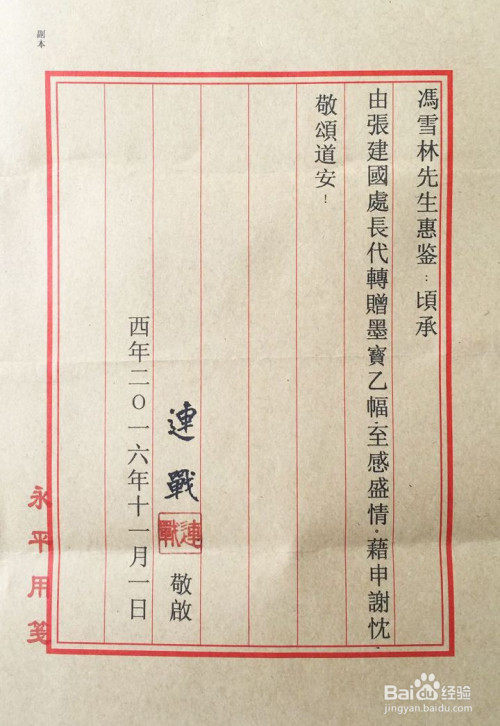 副本
馮雪林先生惠鉴：頃承
由張建國處長代轉贈墨寶乙幅．至感盛情．藉申謝忱．
敬頌道安！
連戰
連戰
敬啟
西年二〇一六年十一月一日
永平用箋
Baidu经验
jingyan.baidu.com